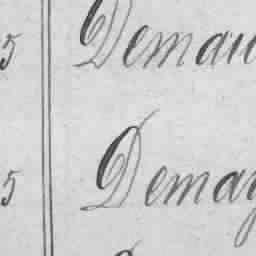 5 Demau
5 Demay